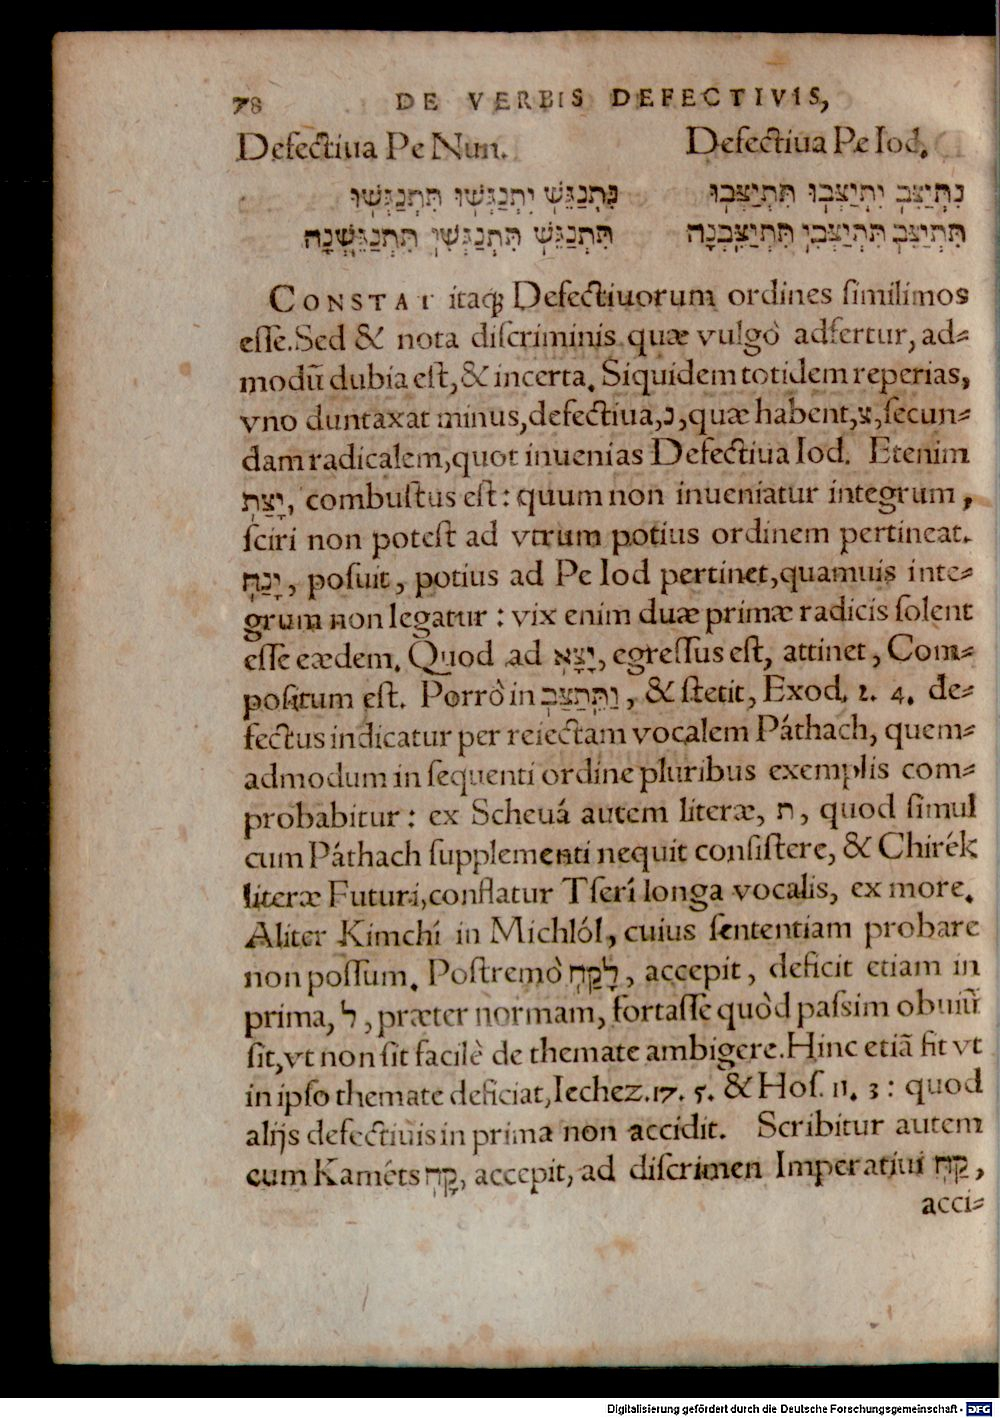 78 DE VERBIS DEFECTIVIS,
Defectiua Pe Nun. Defectiua Pe Iod.
נִתְנַגֵּשׁ יִתְנַגְּשׁוּ תִּתְנַגְּשׁוּ נִתְיַצֵּב יִתְיַצְּבוּ תִּתְיַצְּבוּ
תִּתְנַגֵּשׁ תִּתְנַגְּשִׁי תִּתְנַגֵּשְׁנָה תִּתְיַצֵּב תִּתְיַצְּבִי תִּתְיַצֵּבְנָה
CONSTAT itaq; Defectiuorum ordines simili mos
esse. Sed & nota discriminis quæ vulgò adfertur, ad-
modũ dubia est, & incerta. Siquidem totidem reperias,
vno duntaxat minus, defectiua, נ, quæ habent, צ, secun-
dam radicalem, quot inuenias Defectiua Iod. Etenim
יָצַת, combustus est: quum non inueniatur integrum,
sciri non potest ad vtrum potius ordinem pertineat.
יָנַח, posuit, potius ad Pe Iod pertinet, quamuis inte-
grum non legatur: vix enim duæ primæ radicis solent
esse eædem. Quod ad יָצָא, egressus est, attinet, Com-
positum est. Porrò in וַתֵּתַצַּב, & stetit, Exod. 2. 4. de-
fectus indicatur per reiectam vocalem Páthach, quem-
admodum in sequenti ordine pluribus exemplis com-
probabitur: ex Scheuá autem literæ, ת, quod simul
cum Páthach supplementi nequit consistere, & Chirék
literæ Futuri, conflatur Tserí longa vocalis, ex more.
Aliter Kimchí in Michlól, cuius sententiam probare
non possum. Postremò לָקַח, accepit, deficit etiam in
prima, ל, præter normam, fortasse quòd passim obuiũ
sit, vt non sit facilè de themate ambigere. Hinc etiã fit vt
in ipso themate deficiat, Iechez. 17. 5. & Hos. 11. 3: quod
alijs defectiuis in prima non accidit. Scribitur autem
cum Kaméts קָח, accepit, ad discrimen Imperatiui קַח,
acci-
Digitalisierung gefördert durch die Deutsche Forschungsgemeinschaft - DFG